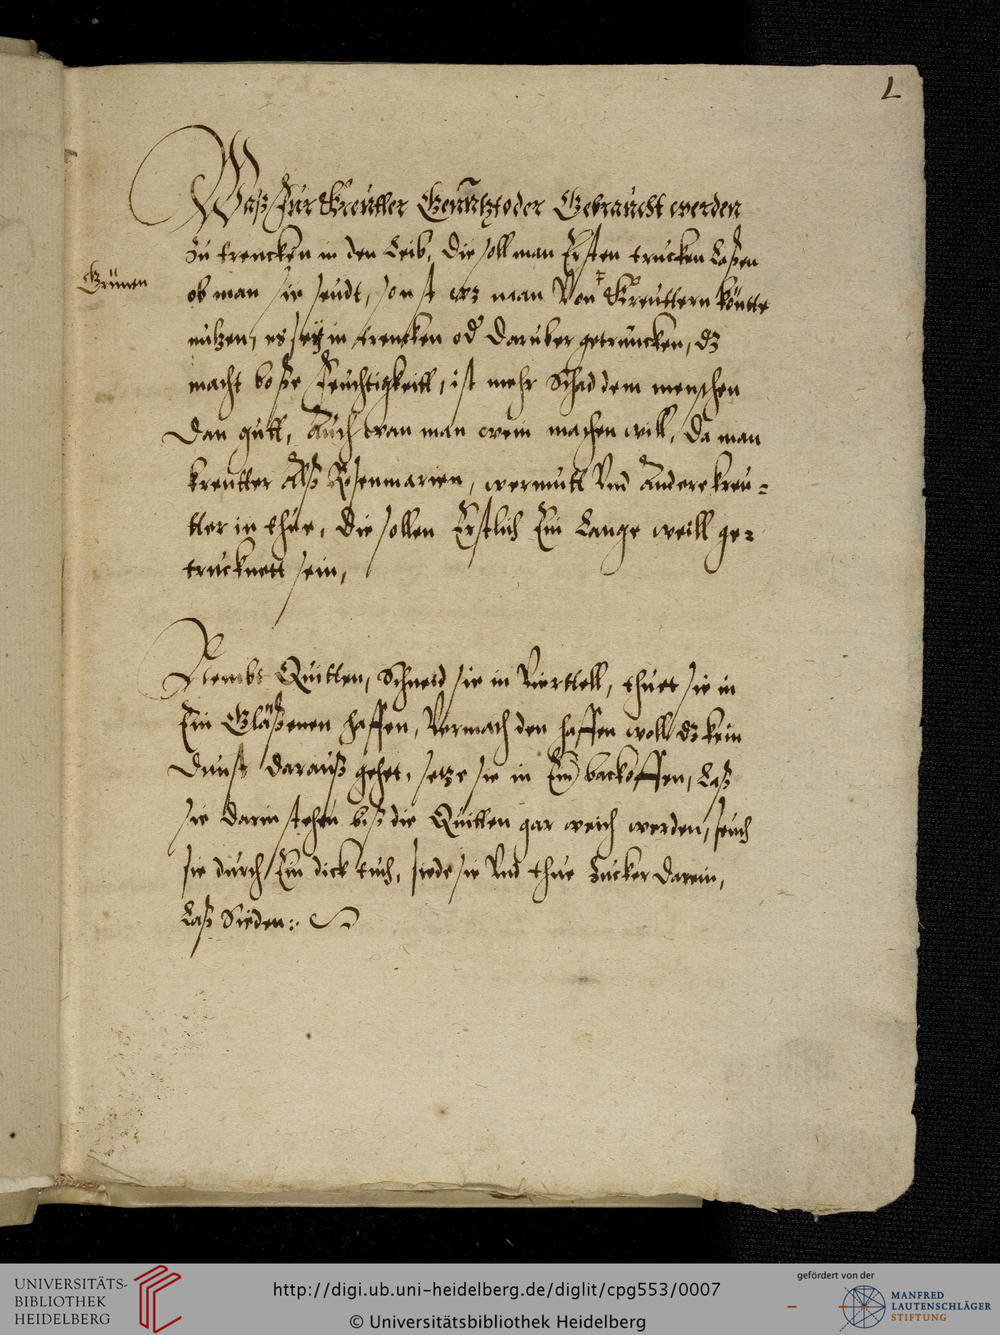 1
Waß für Kreutter Genutzt oder Gebraucht werden
Zu trencken in den Leib, die soll man Ersten trucken Laßen
Grünen
ob man sie seudt, sonst wz man Von Kreuttern köntte
nutzen, es seÿ in trencken od daruber getruncken, dz
macht boße feuchtigkeitt, ist mehr Schad dem menschen
dan gutt, Auch wan man wein machen will, da man
kreutter Alß Roßenmarien, wermutt Vnd Andere kreu-
tter in thue, die sollen Erstlich Ein Lange weill ge-
trucknett sein,
Nembt Quitten, Schneid sie in Vierttell, thuet sie in
Ein Gläßenen haffen, Vermach den haffen woll dz kein
dunst darauß gehet, setze sie in Ein backoffen, Laß
sie darin stehen biß die Quitten gar weich werden, seuch
sie durch Ein dick tuch, siede sie Vnd thue Zucker darein,
Laß Sieden:
UNIVERSITÄTS-
BIBLIOTHEK
HEIDELBERG
http://digi.ub.uni-heidelberg.de/diglit/cpg553/0007
© Universitätsbibliothek Heidelberg
gefördert von der
MANFRED
LAUTENSCHLÄGER
STIFTUNG